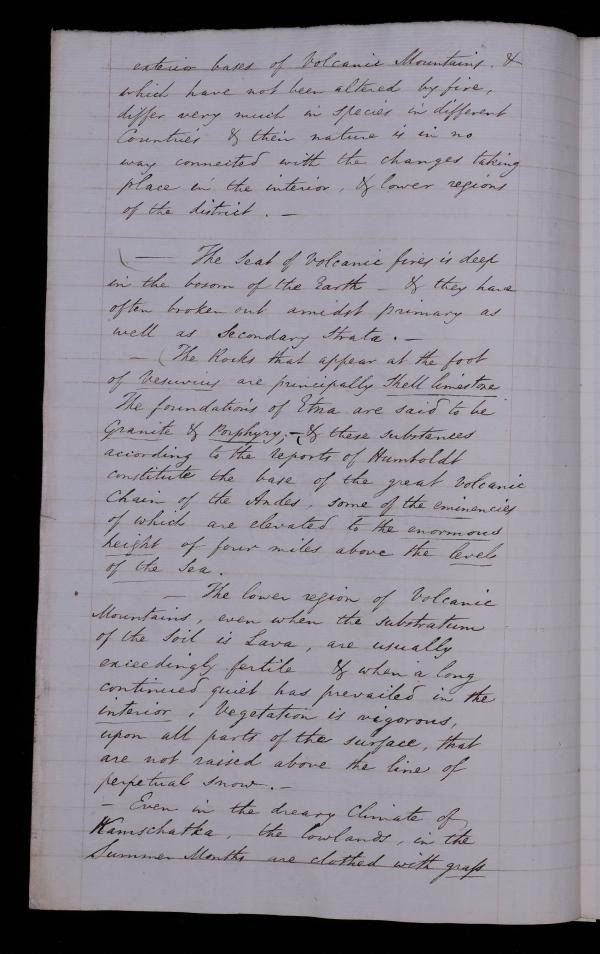 exterior bases of Volcanic Mountains. &
which have not been altered by fire,
differ very much in species in different
Countries & their nature is in no
way connected with the changes taking
place in the interior, & lower regions
of the district. —
— The Seat of Volcanic fires is deep
in the bosom of the Earth — & they have
often broken out amidst primary as
well as Secondary Strata. —
— (The Rocks that appear at the foot
of Vesuvius are principally Shell limestone
The foundations of Etna are said to be
Granite & Porphyry; — & these substances
according to the reports of Humboldt
constitute the base of the great Volcanic
Chain of the Andes, some of the eminencies
of which are elevated to the enormous
height of four miles above the level
of the Sea.
— The lower region of Volcanic
Mountains, even when the substratum
of the Soil is Lava, are usually
exceedingly fertile & when a long
continued quiet has prevailed in the
interior, Vegetation is vigorous,
upon all parts of the surface, that
are not raised above the line of
perpetual snow. —
— Even in the dreary Climate of
Kamschatka, the lowlands, in the
Summer Months are clothed with grass